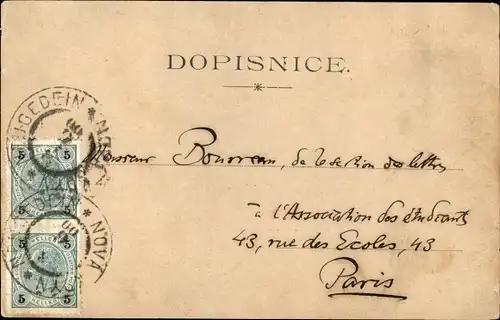 DOPISNICE.
NEUGEDEIN * NOVÁ
5 5
5 5
* NOVÁ
5 5
HELLER
5 5
Monsieur Bonoreau, de la section des lettres
à l'Association des étudiants
43, rue des Ecoles, 43
Paris